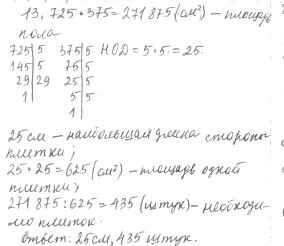 13. 725 • 375 = 271 875 (см²) – площадь
пола
725|5 375|5 НОД = 5 • 5 = 25
145|5 75|5
29|29 25|5
1| 5|5
1|
25 см – наибольшая длина стороны
плитки;
25 • 25 = 625 (см²) – площадь одной
плитки;
271 875 : 625 = 435 (штук) – необходи-
мо плиток.
Ответ: 25 см, 435 штук.